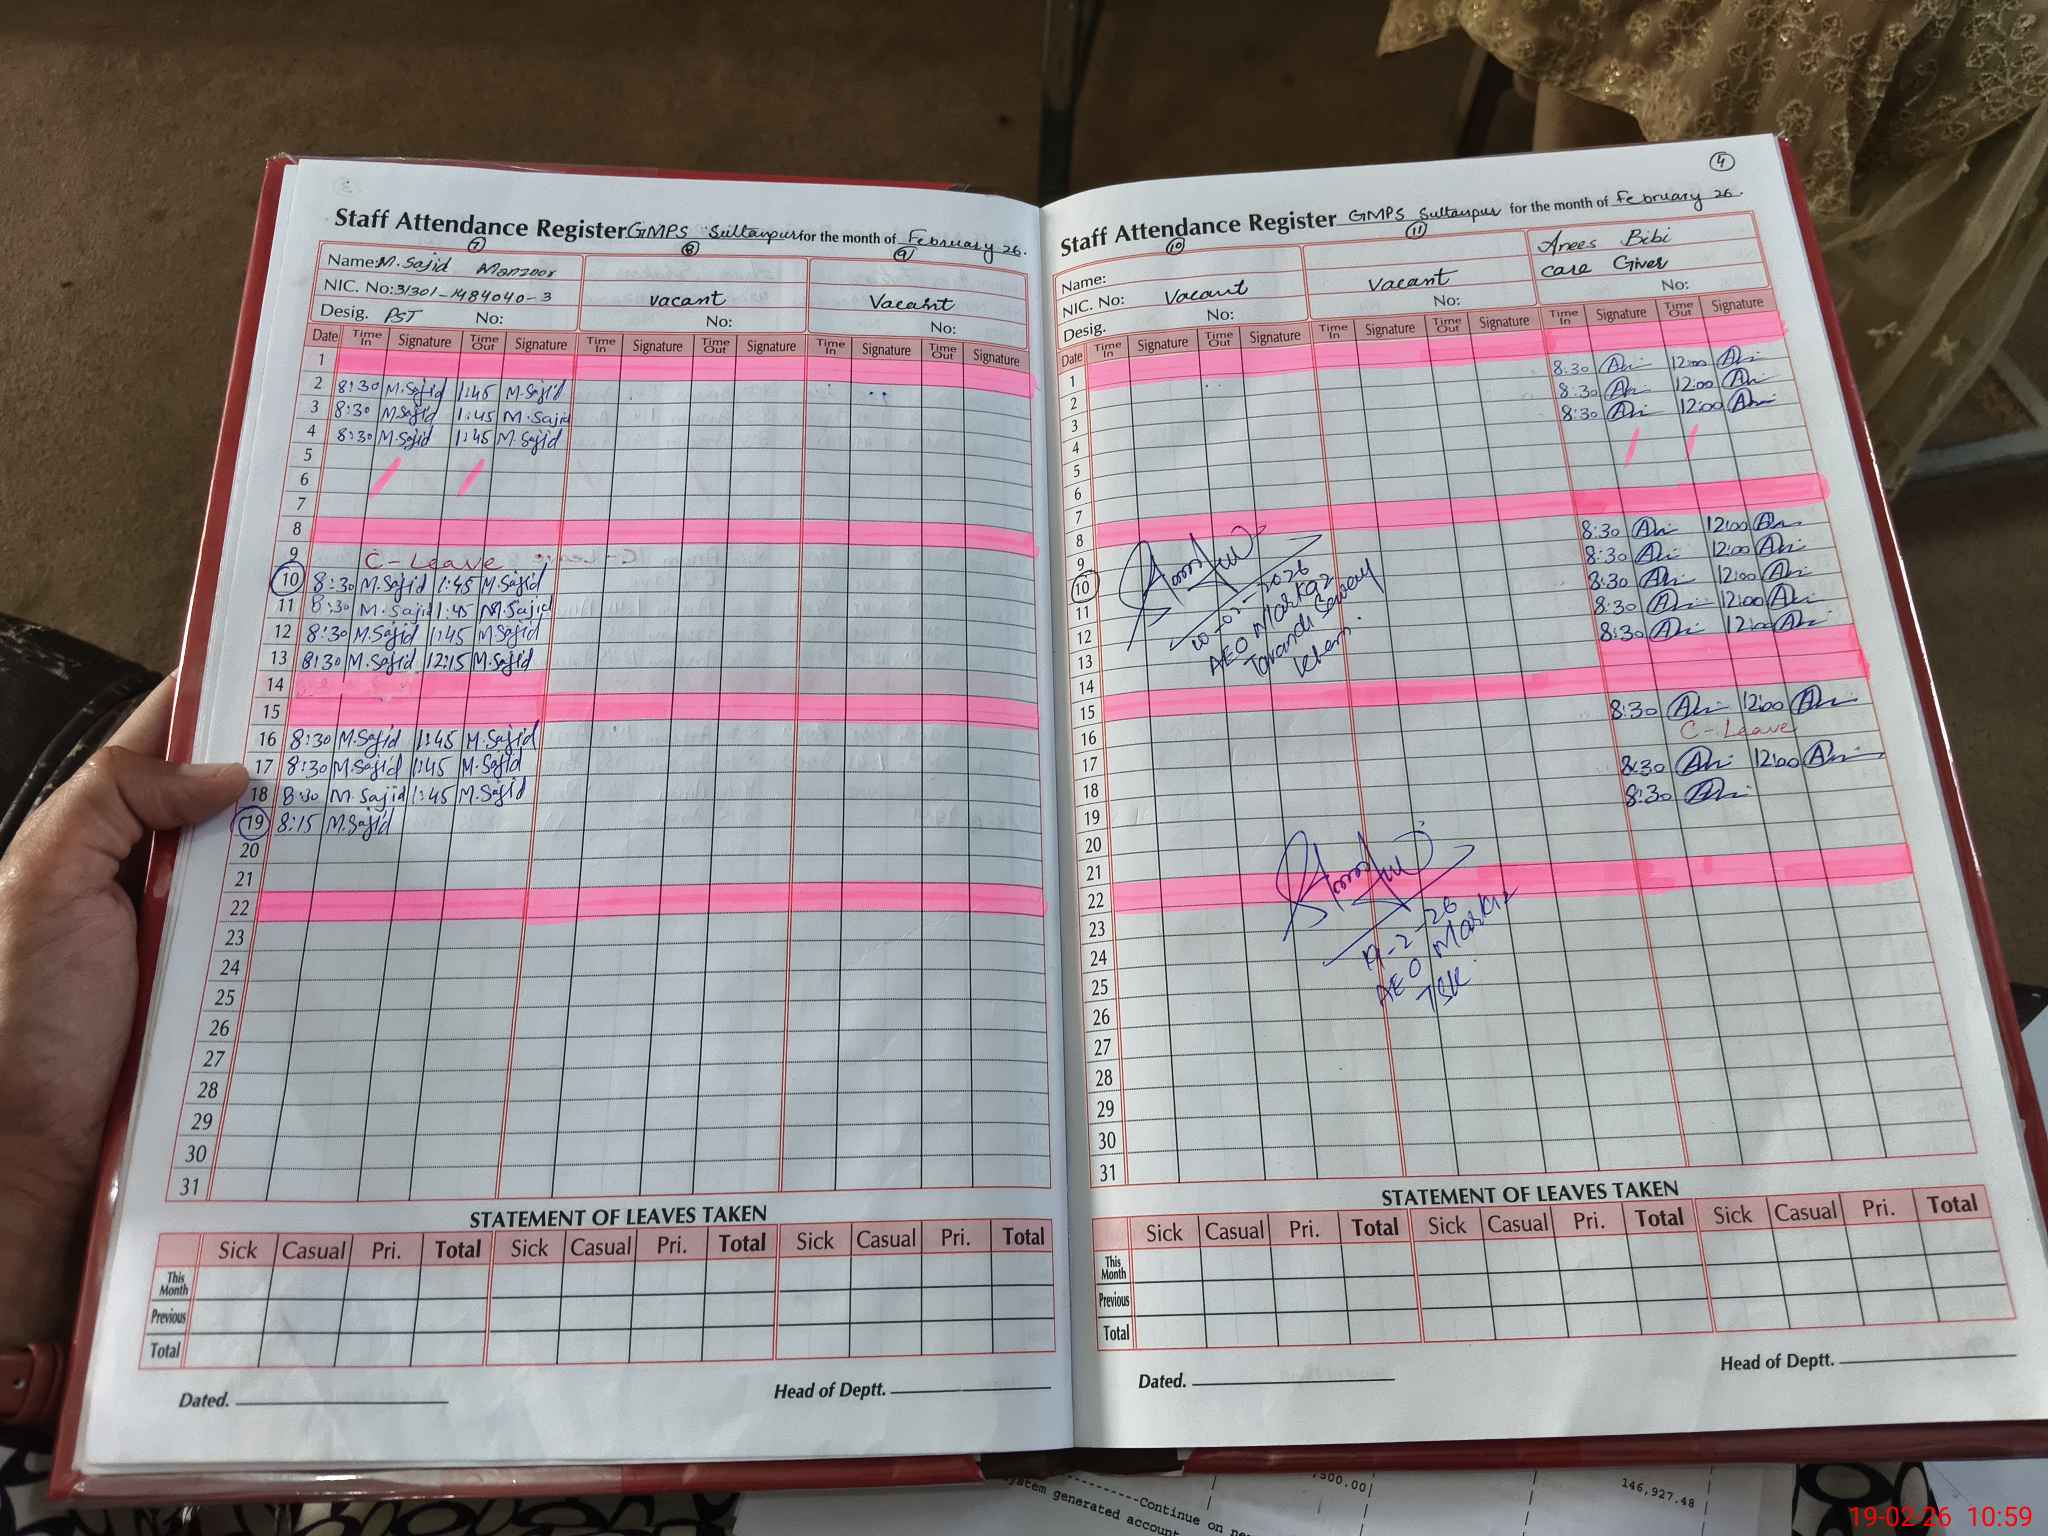 Staff Attendance Register GMPS Sultanpur for the month of February 26.
7 8 9
Name: M. Sajid Manzoor
NIC. No: 31301-1484040-3 vacant Vacant
Desig. PST No: No: No:
Date Time In Signature Time Out Signature Time In Signature Time Out Signature Time In Signature Time Out Signature
1
2 8:30 M.Sajid 1:45 M.Sajid
3 8:30 M.Sajid 1:45 M.Sajid
4 8:30 M.Sajid 1:45 M.Sajid
5
6
7
8
9 C-Leave
10 8:30 M.Sajid 1:45 M.Sajid
11 8:30 M.Sajid 1:45 M.Sajid
12 8:30 M.Sajid 1:45 M.Sajid
13 8:30 M.Sajid 12:15 M.Sajid
14
15
16 8:30 M.Sajid 1:45 M.Sajid
17 8:30 M.Sajid 1:45 M.Sajid
18 8:30 M.Sajid 1:45 M.Sajid
19 8:15 M.Sajid
20
21
22
23
24
25
26
27
28
29
30
31
STATEMENT OF LEAVES TAKEN
Sick Casual Pri. Total Sick Casual Pri. Total Sick Casual Pri. Total
This Month
Previous
Total
Dated. Head of Deptt.
4
Staff Attendance Register GMPS Sultanpur for the month of February 26.
10 11
Name: Anees Bibi
NIC. No: Vacant Vacant Care Giver
Desig. No: No: No:
Date Time In Signature Time Out Signature Time In Signature Time Out Signature Time In Signature Time Out Signature
1
2 8:30 12:00
3 8:30 12:00
4 8:30 12:00
5
6
7
8
9 8:30 12:00
10 8:30 12:00
11 8:30 12:00
12 8:30 12:00
13 8:30 12:00
10-02-2026
AEO Markaz
14
15
16 8:30 12:00
17 C-Leave
18 8:30 12:00
19 8:30
20
21
22
23
24
25
26
27
28
29
30
31
19-2-26
AEO Markaz
TSK
STATEMENT OF LEAVES TAKEN
Sick Casual Pri. Total Sick Casual Pri. Total Sick Casual Pri. Total
This Month
Previous
Total
Dated. Head of Deptt.
Continue on
system generated account
,500.00
146,927.48
19-02-26 10:59